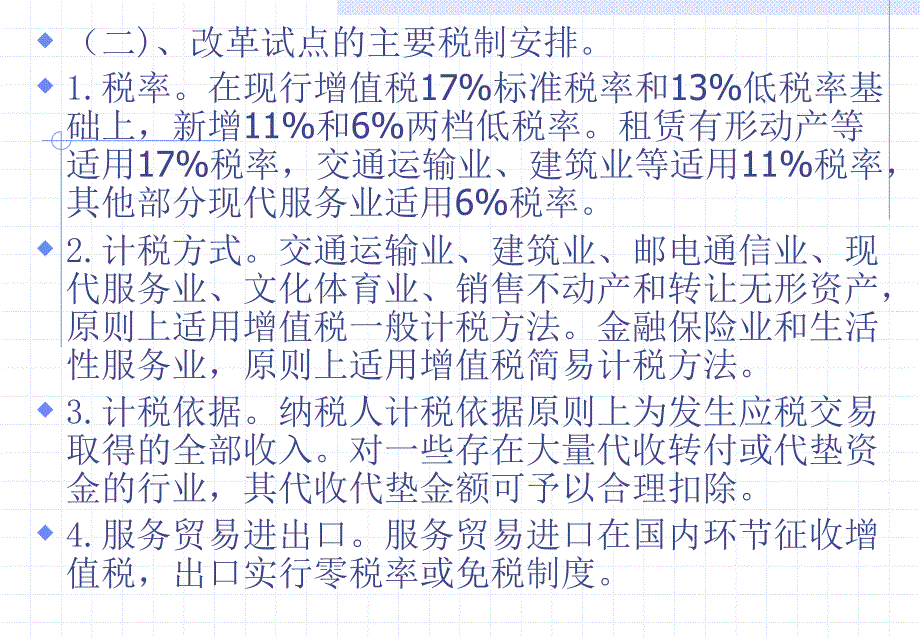 （二）、改革试点的主要税制安排。
1.税率。在现行增值税17%标准税率和13%低税率基
础上，新增11%和6%两档低税率。租赁有形动产等
适用17%税率，交通运输业、建筑业等适用11%税率，
其他部分现代服务业适用6%税率。
2.计税方式。交通运输业、建筑业、邮电通信业、现
代服务业、文化体育业、销售不动产和转让无形资产，
原则上适用增值税一般计税方法。金融保险业和生活
性服务业，原则上适用增值税简易计税方法。
3.计税依据。纳税人计税依据原则上为发生应税交易
取得的全部收入。对一些存在大量代收转付或代垫资
金的行业，其代收代垫金额可予以合理扣除。
4.服务贸易进出口。服务贸易进口在国内环节征收增
值税，出口实行零税率或免税制度。